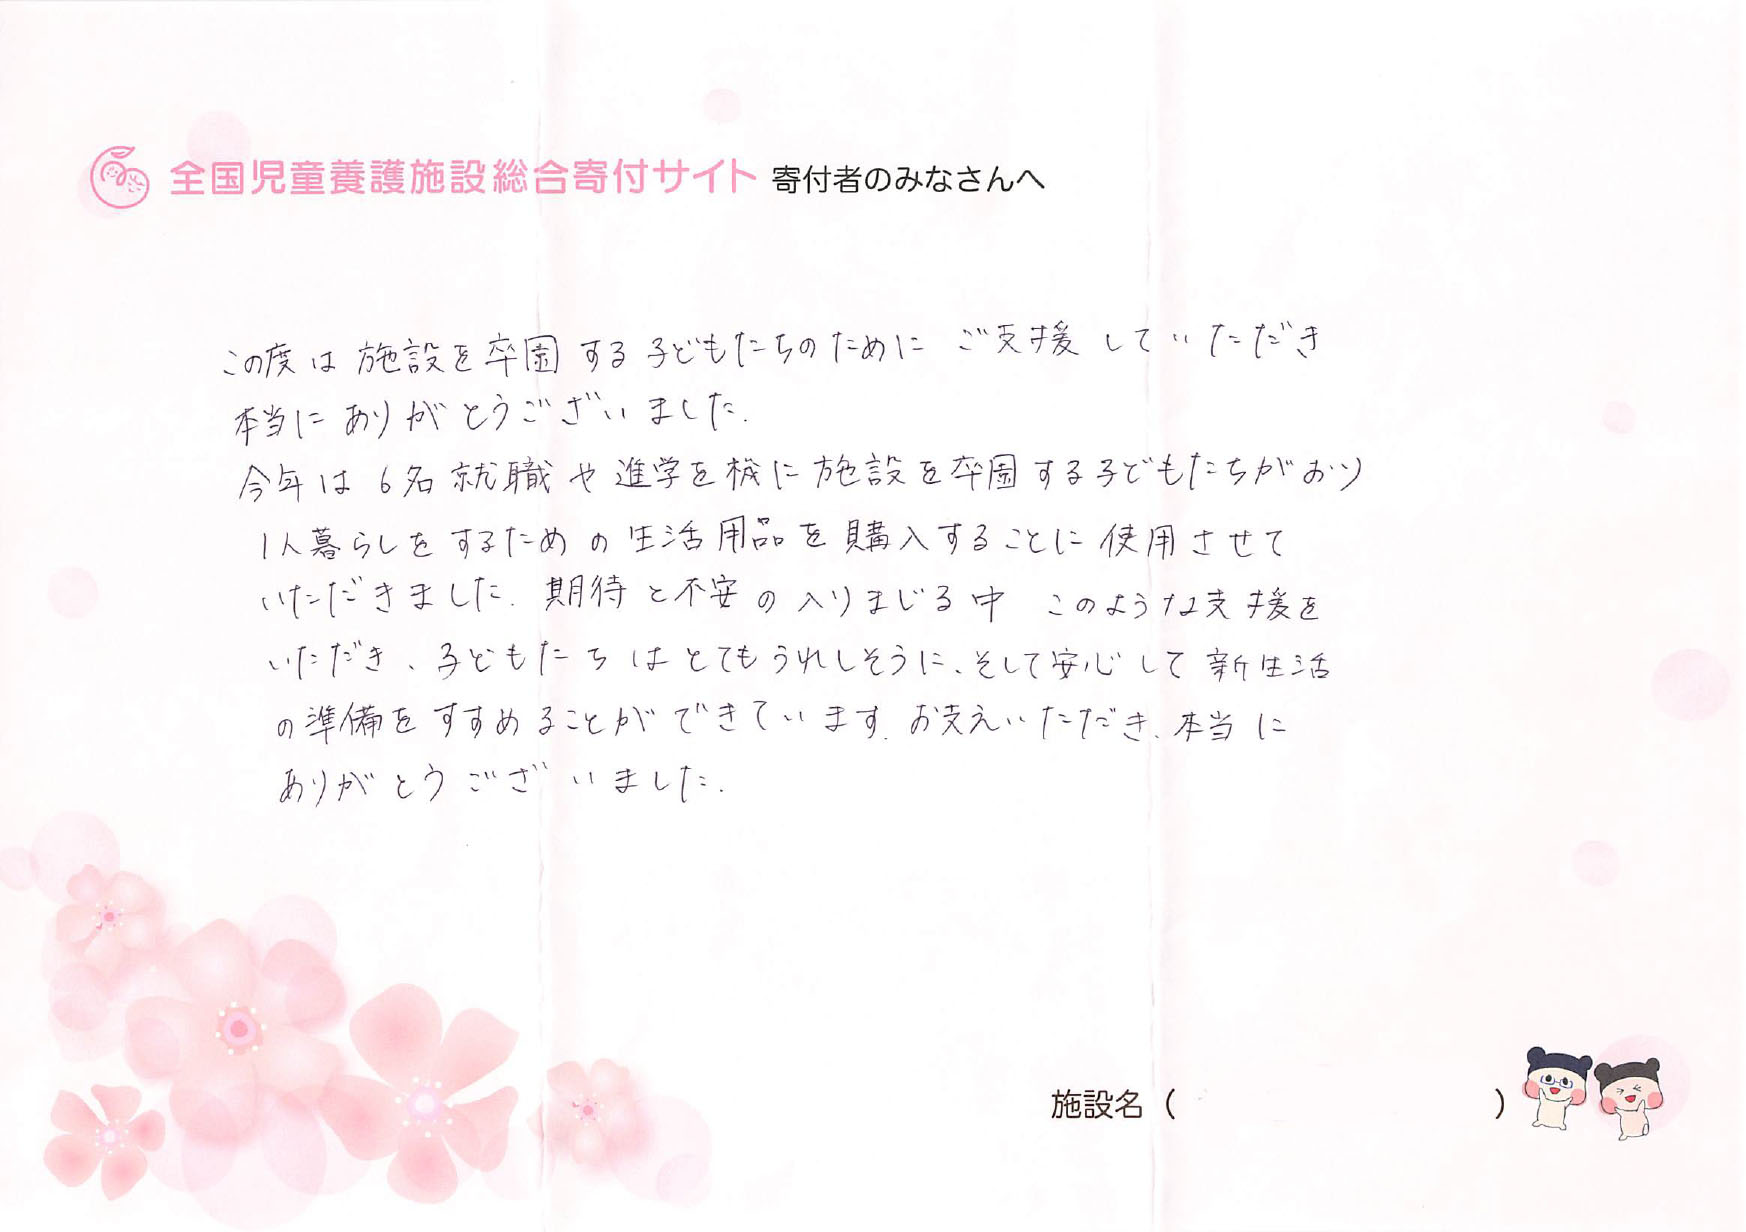 全国児童養護施設総合寄付サイト 寄付者のみなさんへ
この度は施設を卒園する子どもたちのために ご支援していただき
本当にありがとうございました.
今年は6名就職や進学を機に施設を卒園する子どもたちがおり
1人暮らしをするための生活用品を購入することに使用させて
いただきました. 期待と不安の入りまじる中 このような支援を
いただき、子どもたちはとてもうれしそうに、そして安心して新生活
の準備をすすめることができています. お支えいただき、本当に
ありがとうございました.
施設名（ ）